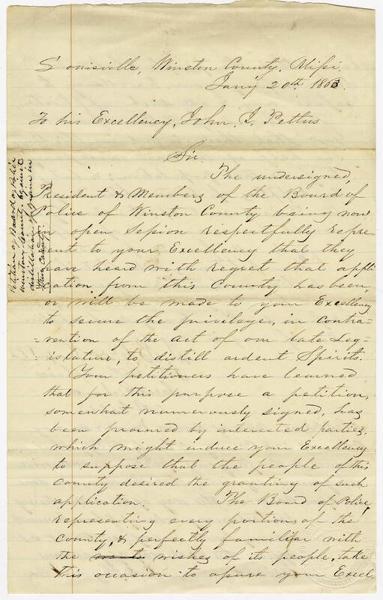 Louisville, Winston County, Missi.
Jan'y 20th 1863.
To his Excellency, John J. Pettus
Sir
The undersigned,
President & Members of the Board of
Police of Winston County being now
in open Session respectfully repre-
sent to your Excellency that they
have heard with regret that appli-
cation from this County has been,
or will be made to your Excellency
to secure the privilege, in contra-
vention of the act of our late Leg-
islature, to distill ardent Spirits.
Your petitioners have learned
that for this purpose a petition,
somewhat numerously signed, has
been procured by interested parties,
which might induce your Excellency
to suppose that the people of this
County desired the granting of such
application. The Board of Police,
representing every portion of the
County, & perfectly familiar with
the wishes of its people, take
this occasion to assure your Excel
Petition of Board of Police
Winston County against
distillation of grain in